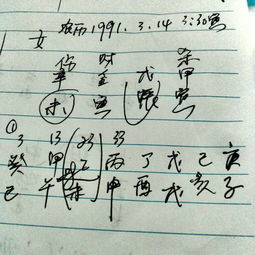 女 农历1991.3.14 3:30寅
伤 财 杀
辛 壬 戊 甲
未 辰 寅
① 3 13 23 33
癸 甲 乙 丙 丁 戊 己 庚
巳 午 未 申 酉 戌 亥 子